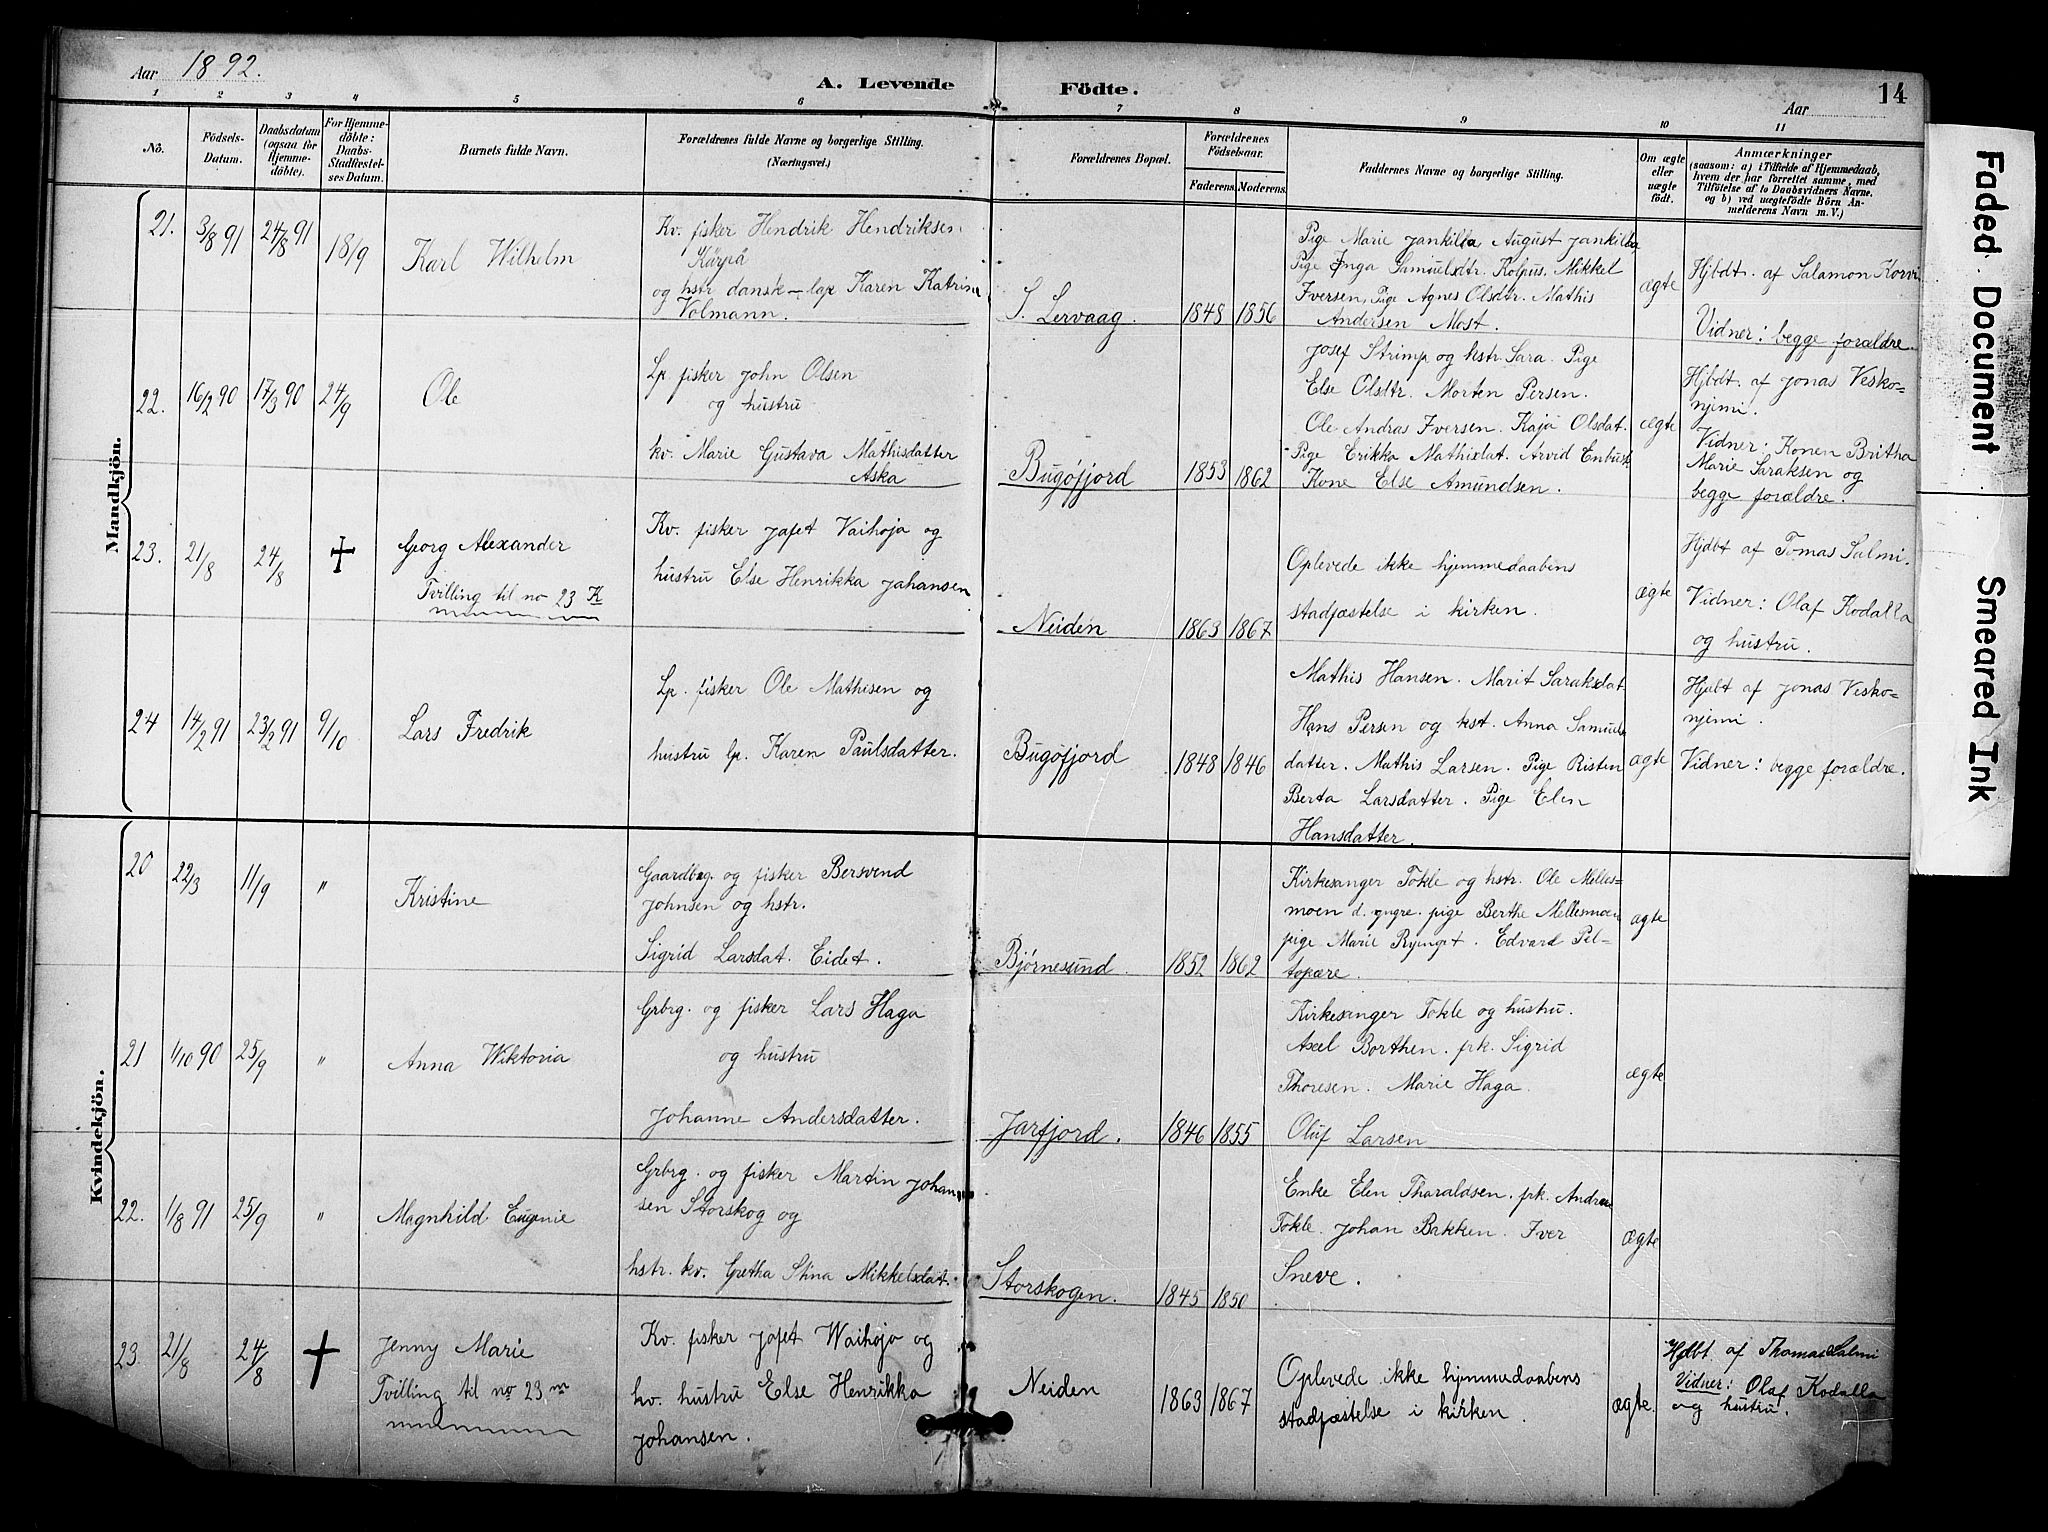 Aar 1892.
A. Levende Födte.
Aar
14
1 2 3 4 5 6 7 8 9 10 11
No.
Födsels-Datum.
Daabsdatum (ogsaa for Hjemmedöbte).
For Hjemmedöbte: Daabs-Stadfæstelses Datum.
Barnets fulde Navn.
Forældrenes fulde Navne og borgerlige Stilling.
(Næringsvei.)
Forældrenes Bopæl.
Forældrenes Födselsaar.
Faderens. Moderens.
Faddernes Navne og borgerlige Stilling.
Om ægte eller uægte födt.
Anmærkninger
(saasom: a) i Tilfælde af Hjemmedaab, hvem der har forrettet samme, med Tilföielse af to Daabsvidners Navne. og b) ved uægtefödte Börn Anmelderens Navn m.V.)
Mandkjön.
21. 3/8 91 24/8 91 18/9 Karl Wilhelm
Kv. fisker Hendrik Hendriksen
Kärpå
og hstr. dansk-lap Karen Katrina
Volmann.
S. Lervaag. 1848 1856
Pige Marie Jankilla August Jankilla
Pige Inga Samuelsdtr. Kolpus. Mikkel
Iversen, Pige Agnes Olsdtr. Mathis
Andersen Most.
ægte
Hjbdt. af Salamon Korvi
Vidner: begge forældre.
22. 16/2 90 17/3 90 24/9 Ole
Lp. fisker John Olsen
og hustru
kv. Marie Gustava Mathisdatter
Aska
Bugøfjord 1853 1862
Josef Strimp og hstr. Sara. Pige
Else Olsdtr. Morten Persen.
Ole Andras Iversen. Kaja Olsdat.
Pige Erikka Mathisdat. Arvid Enbusk
Kone Else Amundsen.
ægte
Hjbdt. af Jonas Vesko-
njemi.
Vidner: Konen Britha
Marie Saraksen og
begge forældre.
23. 21/8 24/8 † Georg Alexander
Tvilling til no 23 K
Kv. fisker Jafet Vaihoja og
hustru Else Henrikka Johansen
Neiden 1863 1867
Oplevede ikke hjemmedaabens
stadfæstelse i kirken.
ægte
Hjdbt af Tomas Salmi.
Vidner: Olaf Kodalla
og hustru.
24 14/2 91 23/2 91 9/10 Lars Fredrik
Lp. fisker Ole Mathisen og
hustru lp. Karen Paulsdatter.
Bugøfjord 1848 1846
Mathis Hansen. Marit Saraksdat
Hans Persen og hst. Anna Samuels
datter. Mathis Larsen. Pige Risten
Berta Larsdatter. Pige Elen
Hansdatter.
ægte
Hjdbt af Jonas Vesko-
njemi.
Vidner: begge forældre.
Kvindekjön.
20 22/3 11/9 " Kristine
Gaardbrg. og fisker Bersvend
Johnsen og hstr.
Sigrid Larsdat. Eidet.
Bjørnesund. 1852 1862
Kirkesanger Tokle og hstr. Ole Melles-
moen d. yngre. pige Berthe Mellesmoen
pige Marie Edvard Pel-
topære.
ægte
21 1/10 90 25/9 " Anna Wiktoria
Grbrg. og fisker Lars Haga
og hustru
Johanne Andersdatter.
Jarfjord. 1846 1855
Kirkesanger Tokle og hustru.
Axel Borthen. frk. Sigrid
Thoresen. Marie Haga.
Oluf Larsen
ægte
22. 1/8 91 25/9 " Magnhild Eugenie
Grbrg. og fisker Martin Johan
sen Storskog og
hstr. kv. Gretha Stina Mikkelsdat.
Storskogen. 1845 1850
Enke Elen Tharaldsen. frk. Andrea
Tokle. Johan Bakken. Iver
Sneve.
ægte
23. 21/8 24/8 † Jenny Marie
Tvilling til no 23 m
Kv. fisker Jafet Waihojo og
kv. hustru Else Henrikka
Johansen.
Neiden 1863 1867
Oplevede ikke hjemmedaabens
stadfæstelse i kirken.
ægte.
Hjdbt. af Thomas Salmi
Vidner: Olaf Kodalla
og hustru.
Faded Document
Smeared Ink